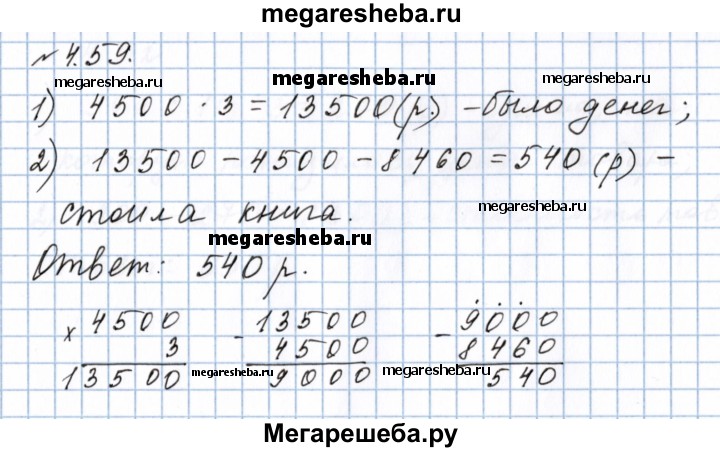 megaresheba.ru
№ 4.59.
megaresheba.ru megaresheba.ru megaresheba.ru
1) 4500 · 3 = 13500 (р.) – было денег;
2) 13500 – 4500 – 8460 = 540 (р) –
стоила книга. megaresheba.ru
megaresheba.ru
Ответ: 540 р.
× 4500 - 13500 - 9000
3 4500 8460
13500 megaresheba.ru 9000 megaresheba.ru 540
Мегарешеба.ру